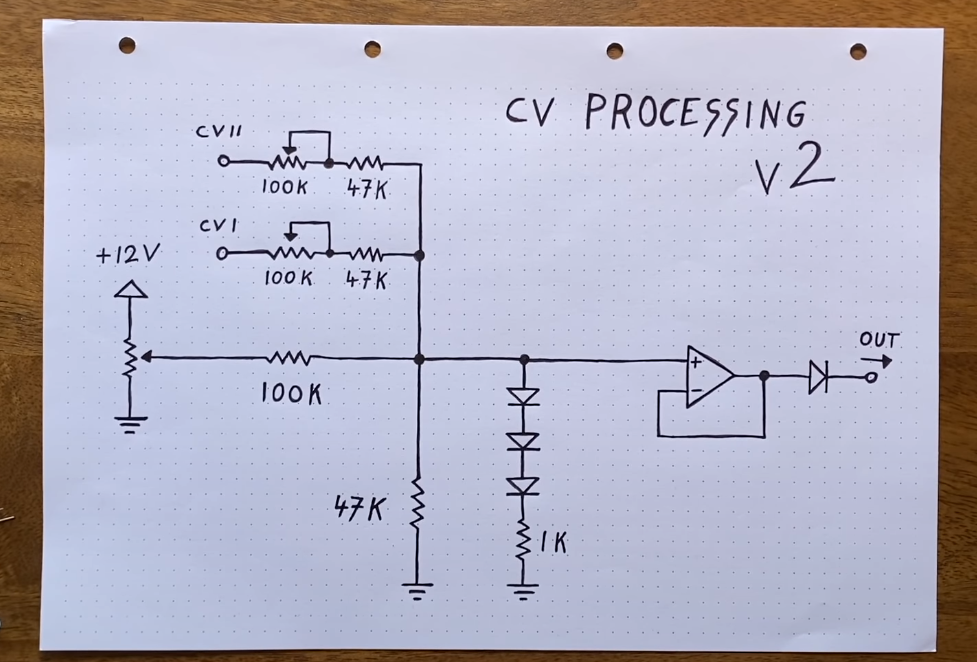 CV PROCESSING
V2
CV II
100K 47K
CV I
100K 47K
+12V
100K
47K
1K
+
-
OUT